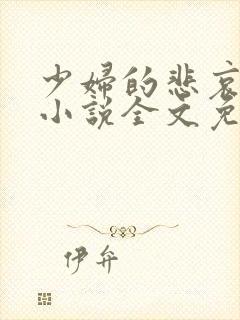 少婦的悲哀
小說全文免
伊弁